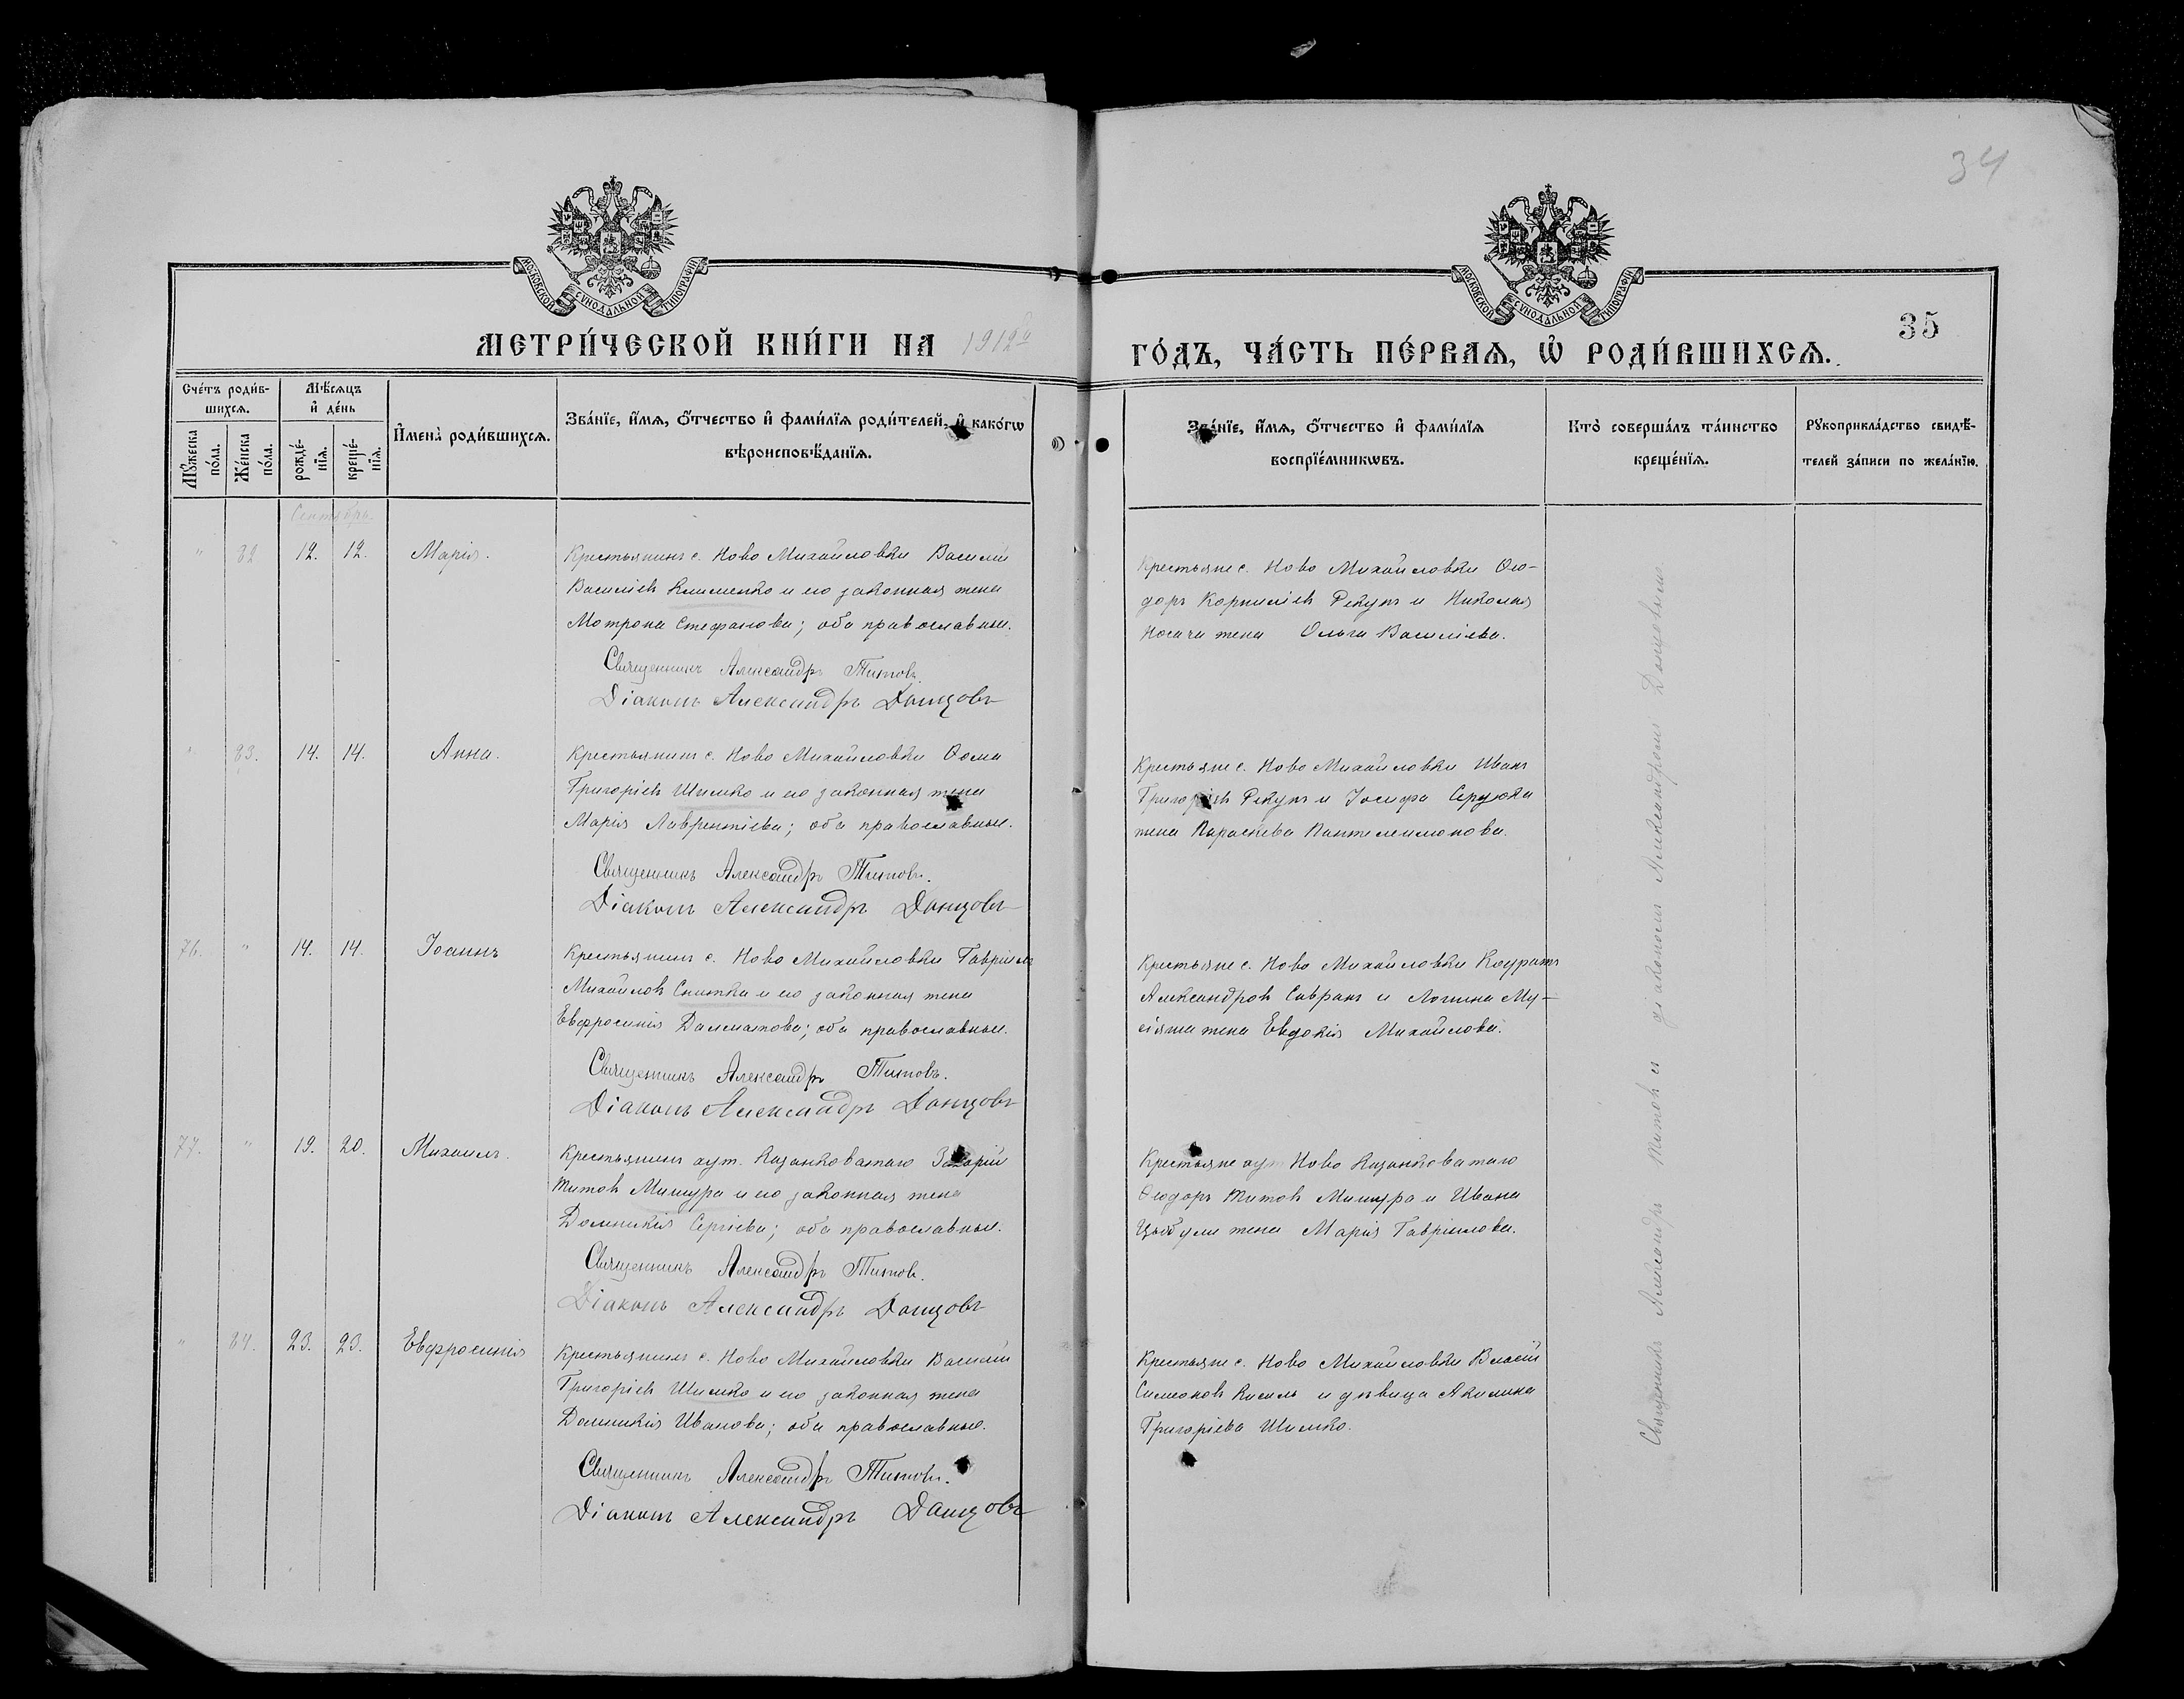 34
МОСКОВСКОЙ СѴНОДАЛЬНОЙ ТИПОГРАФІИ
МОСКОВСКОЙ СѴНОДАЛЬНОЙ ТИПОГРАФІИ
35
МЕТРИ́ЧЕСКОЙ КНИ́ГИ НА 1912й
ГО́ДЪ, ЧА́СТЬ ПЕ́РВАѦ, Ѡ҆ РОДИ́ВШИХСѦ.
Сче́тъ роди́в-
шихсѧ.
Мѣ́сѧцъ
и҆ де́нь
Мꙋ́жеска
по́ла.
Же́нска
по́ла.
рожде́-
нїѧ.
креще́-
нїѧ.
И҆мена̀ роди́вшихсѧ.
Зва́нїе, и҆́мѧ, ѻ҆́тчество и҆ фами́лїѧ роди́телей, и҆ како́гѡ
вѣроисповѣ́данїѧ.
Зва́нїе, и҆́мѧ, ѻ҆́тчество и҆ фами́лїѧ
воспрїе́мникѡвъ.
Кто̀ соверша́лъ та́инство
креще́нїѧ.
Рꙋкоприкла́дство свидѣ́-
телей за́писи по жела́нїю.
Сентябрь.
" 82 12. 12. Марія.
Крестьянинъ с. Ново Михайловки Василій
Василіевъ Клименко и его законная жена
Мотрона Стефанова; оба православные.
Священникъ Александръ Титовъ.
Діаконъ Александръ Донцовъ
Крестьяне с. Ново Михайловки Ѳео-
доръ Корниліевъ Рекунъ и Николая
Носача жена Ольга Василіева.
" 83. 14. 14. Анна.
Крестьянинъ с. Ново Михайловки Ѳома
Григоріевъ Шимко и его законная жена
Марія Лаврентіева; оба православные.
Священникъ Александръ Титовъ.
Діаконъ Александръ Донцовъ
Крестьяне с. Ново Михайловки Иванъ
Григоріевъ Рекунъ и Іосифа Сердюка
жена Параскева Пантелеимонова.
76. " 14. 14. Іоаннъ
Крестьянинъ с. Ново Михайловки Гавріилъ
Михайловъ Снитка и его законная жена
Евфросинія Далматова; оба православные.
Священникъ Александръ Титовъ.
Діаконъ Александръ Донцовъ
Крестьяне с. Ново Михайловки Кодратъ
Александровъ Савранъ и Логина Му-
сіяша жена Евдокія Михайлова.
77. " 19. 20. Михаилъ.
Крестьянинъ хут. Казанковатаго Захарій
Титовъ Мишура и его законная жена
Домникія Сергіева; оба православные.
Священникъ Александръ Титовъ.
Діаконъ Александръ Донцовъ
Крестьяне хут Ново Казанковатаго
Ѳеодоръ Титовъ Мишура и Ивана
Цыбули жена Марія Гавріилова.
" 84. 23. 23. Евфросинія
Крестьянинъ с. Ново Михайловки Василій
Григоріевъ Шимко и его законная жена
Домникія Иванова; оба православные.
Священникъ Александръ Титовъ.
Діаконъ Александръ Донцовъ
Крестьяне с. Ново Михайловки Власій
Симеоновъ Кисиль и дѣвица Акилина
Григоріева Шимко.
Священникъ Александръ Титовъ съ діакономъ Александромъ Донцовымъ